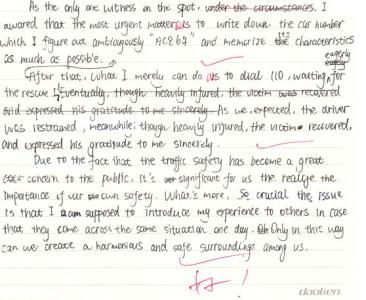 As the only one witness on the spot, under the circumstances. I
awared that the most urgent matter is to write down the car number
which I figure out ambiguously "AC864" and memorize its characteristics
as much as possible.
eagerly
After that, what I merely can do is to dial 110, waiting for
the rescue. Eventually, though heavily injured, the victim was recovered
and expressed his gratitude to me sincerely. As we expected, the driver
was restrained, meanwhile, though heavily injured, the victim recovered,
and expressed his gratitude to me sincerely.
Due to the fact that the traffic safety has become a great
concern to the public, it's significant for us the realize the
importance of our own safety. What's more, so crucial the issue
is that I am supposed to introduce my experience to others in case
that they come across the same situation one day. Only in this way
can we create a harmonious and safe surroundings among us.
daolien